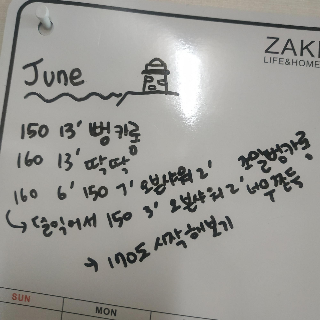 ZAKI
LIFE&HOME
June
150 13' 뻥키롱
160 13' 딱딱
160 6' 150 7' 오븐샤워 2' 조일뻥키롱
↳ 덜익어서 150 3' 오븐샤워 2' 너무쫀득
→ 170도 시작해보기
SUN
MON